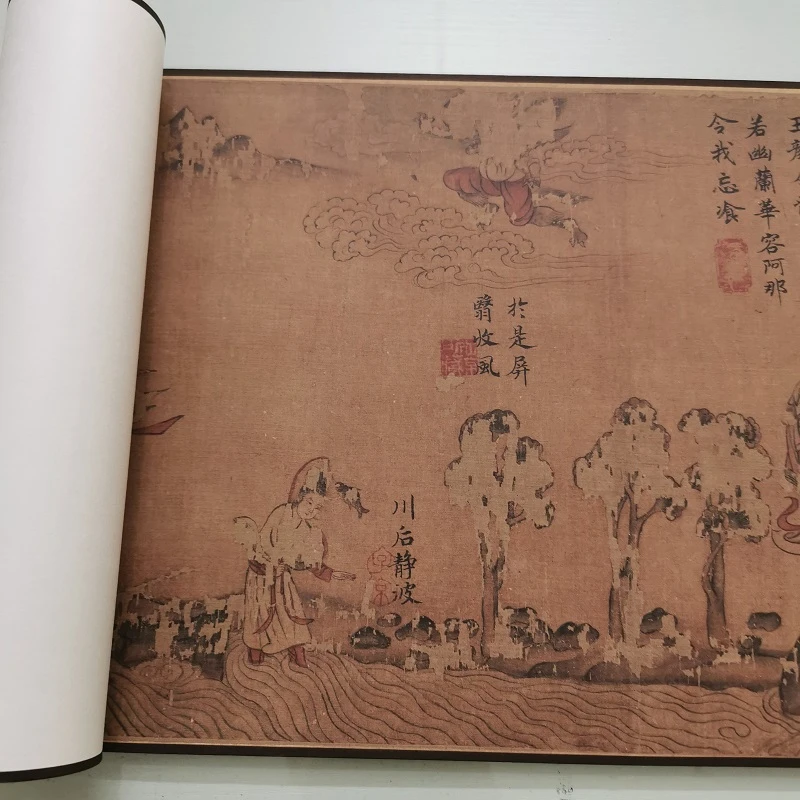 若幽蘭華容阿那
令我忘湌
於是屏
翳收風
川后静波